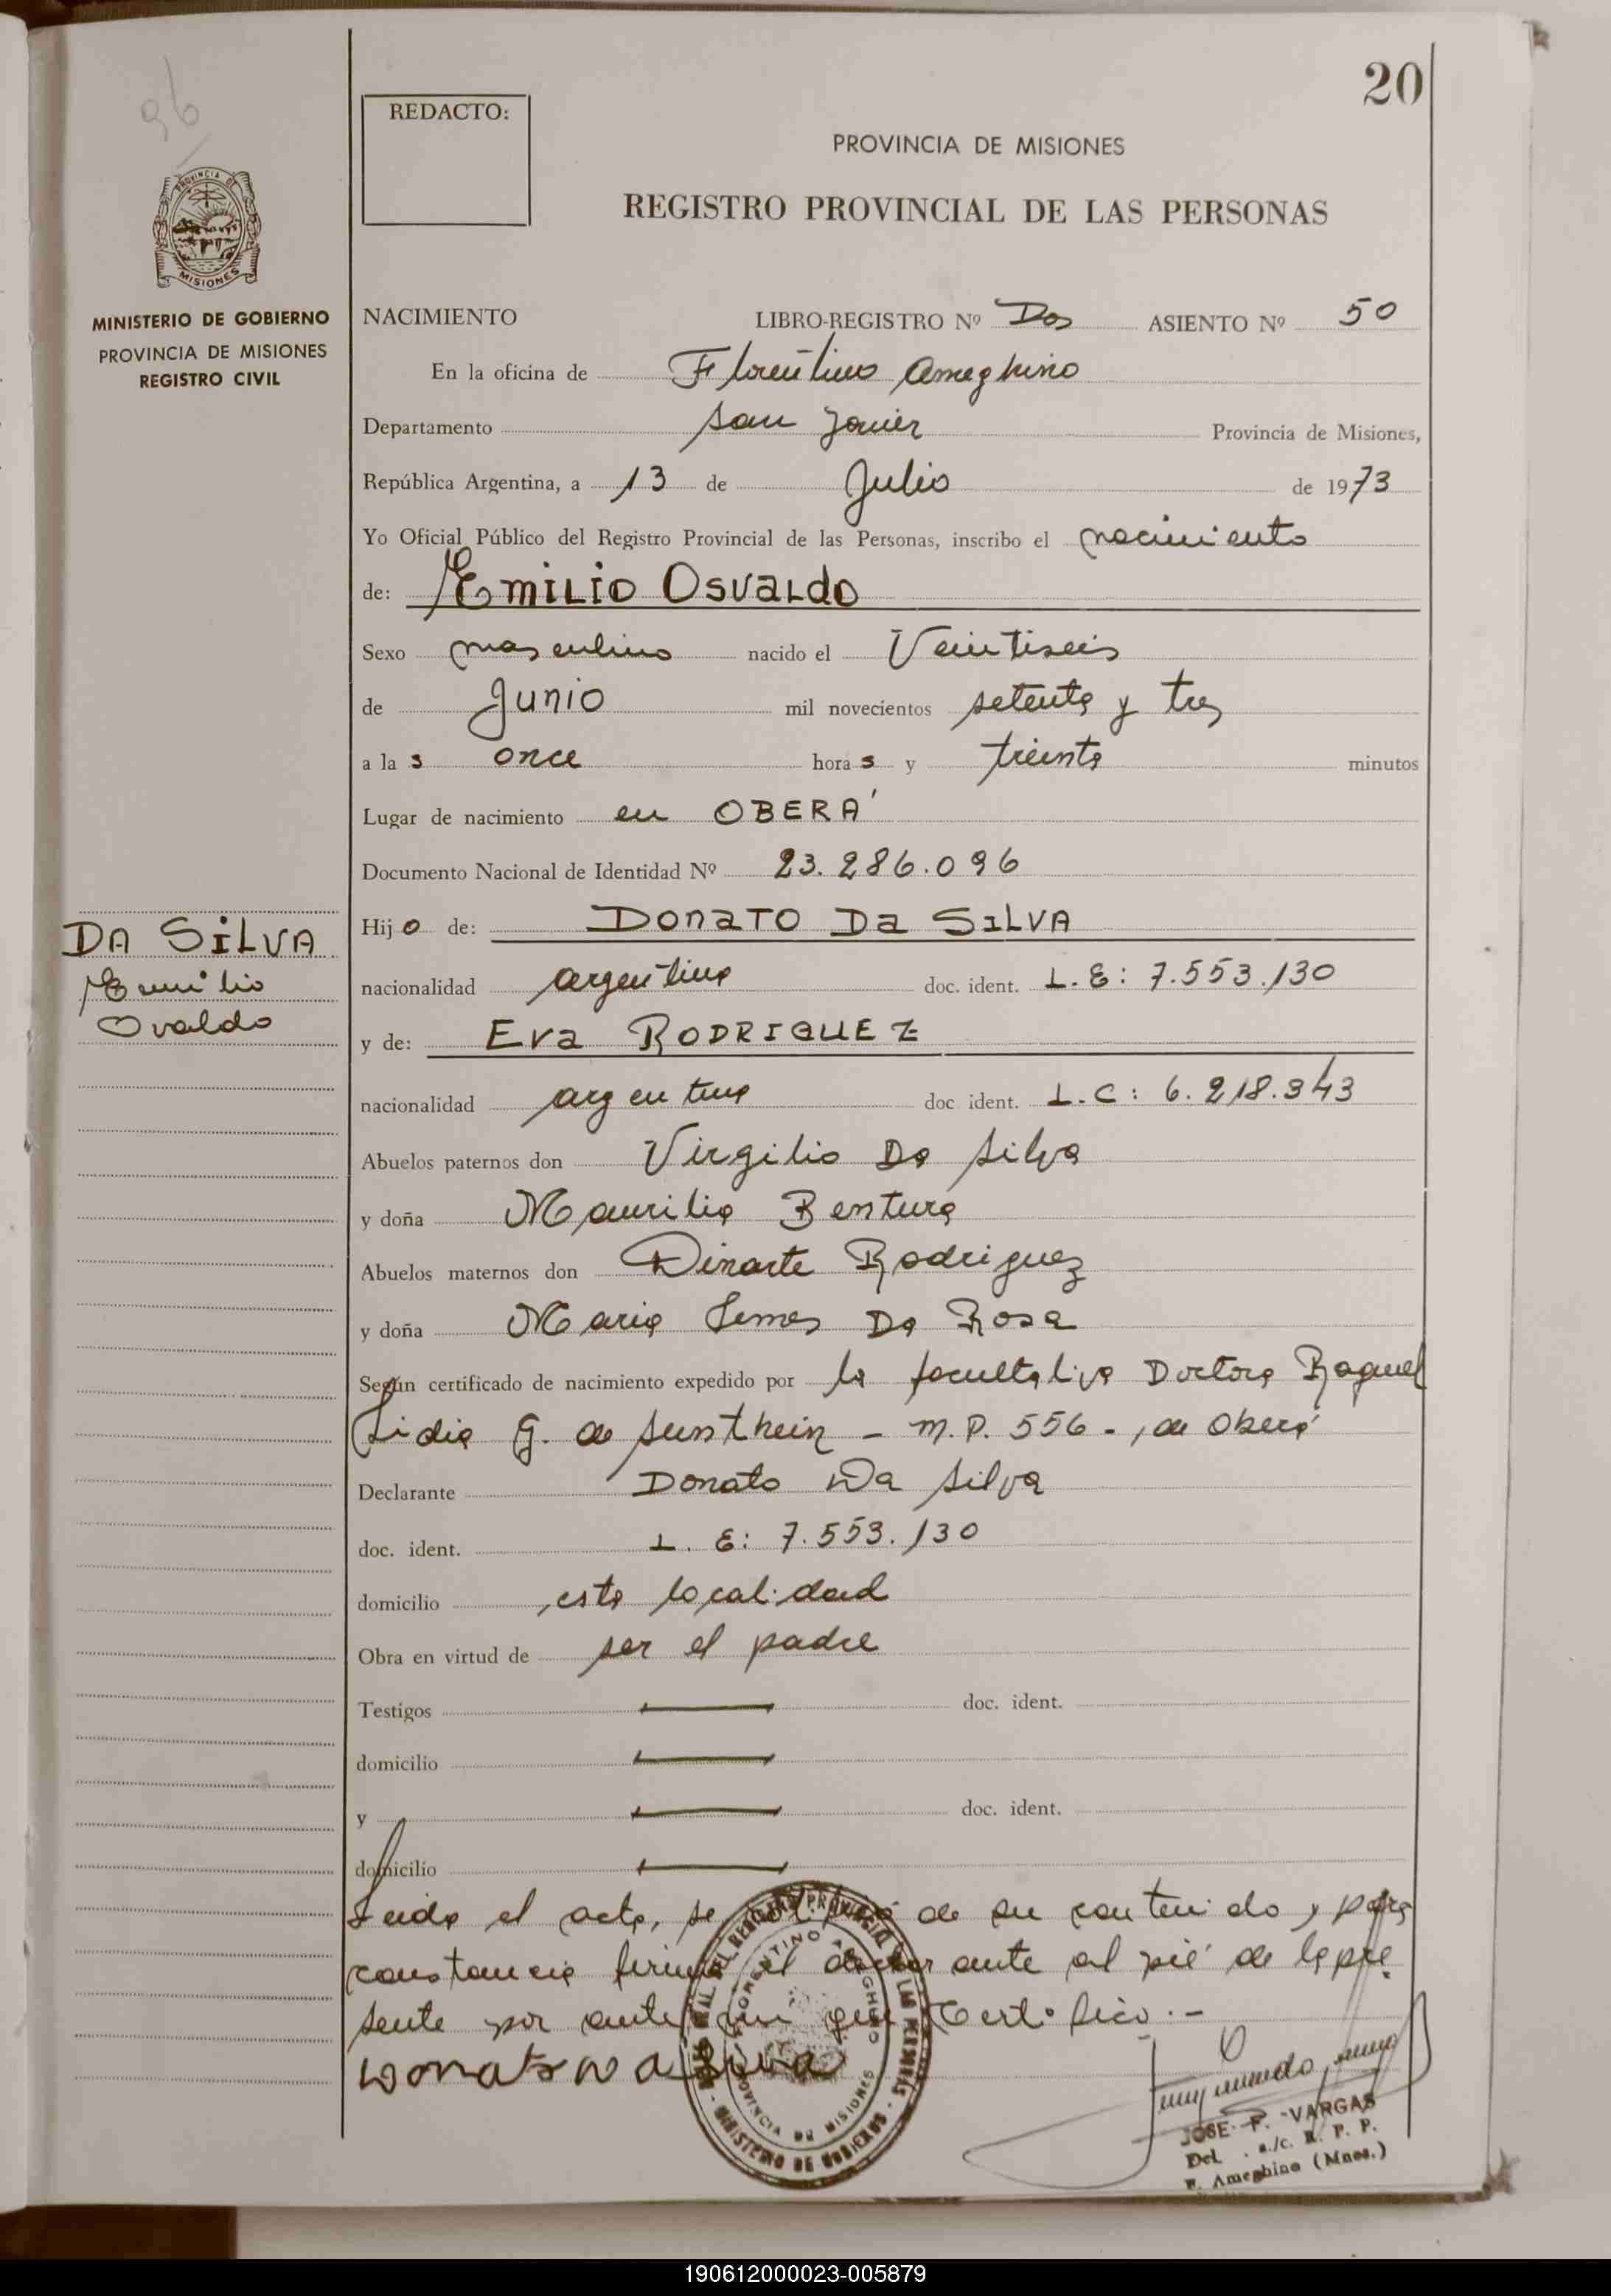 96
20
REDACTO:
PROVINCIA DE MISIONES
REGISTRO PROVINCIAL DE LAS PERSONAS
PROVINCIA DE
MISIONES
MINISTERIO DE GOBIERNO
PROVINCIA DE MISIONES
REGISTRO CIVIL
NACIMIENTO LIBRO-REGISTRO Nº Dos ASIENTO Nº 50
En la oficina de Florentino Ameghino
Departamento San Javier Provincia de Misiones,
República Argentina, a 13 de Julio de 1973
Yo Oficial Público del Registro Provincial de las Personas, inscribo el nacimiento
de: Emilio Osvaldo
Sexo masculino nacido el Veintiseis
de Junio mil novecientos setenta y tres
a la s once hora s y treinta minutos
Lugar de nacimiento en OBERÁ
Documento Nacional de Identidad Nº 23.286.096
DA SILVA
Emilio
Ovaldo
Hij o de: DONATO Da SILVA
nacionalidad argentina doc. ident. L.E: 7.553.130
y de: Eva RODRIGUEZ
nacionalidad argentina doc ident. L.C: 6.218.343
Abuelos paternos don Virgilio Da Silva
y doña Maurilia Bentura
Abuelos maternos don Dinarte Rodriguez
y doña Maria Da Rosa
Según certificado de nacimiento expedido por la facultativa Doctora Raquel
Lidia G. de - M.P. 556 -, de Oberá
Declarante Donato Da Silva
doc. ident. L.E: 7.553.130
domicilio esta localidad
Obra en virtud de ser el padre
Testigos doc. ident.
domicilio
y doc. ident.
domicilio
Leida el acta, se de su contenido y para
constancia firma el declarante al pié de la pre
sente por ante mi que Certifico.-
Donato Da Silva
FLORENTINO AMEGHINO
PROVINCIA DE MISIONES
MINISTERIO DE GOBIERNO
JOSE F. VARGAS
Del. a/c. R. P. P.
F. Ameghino (Mnes.)
190612000023-005879